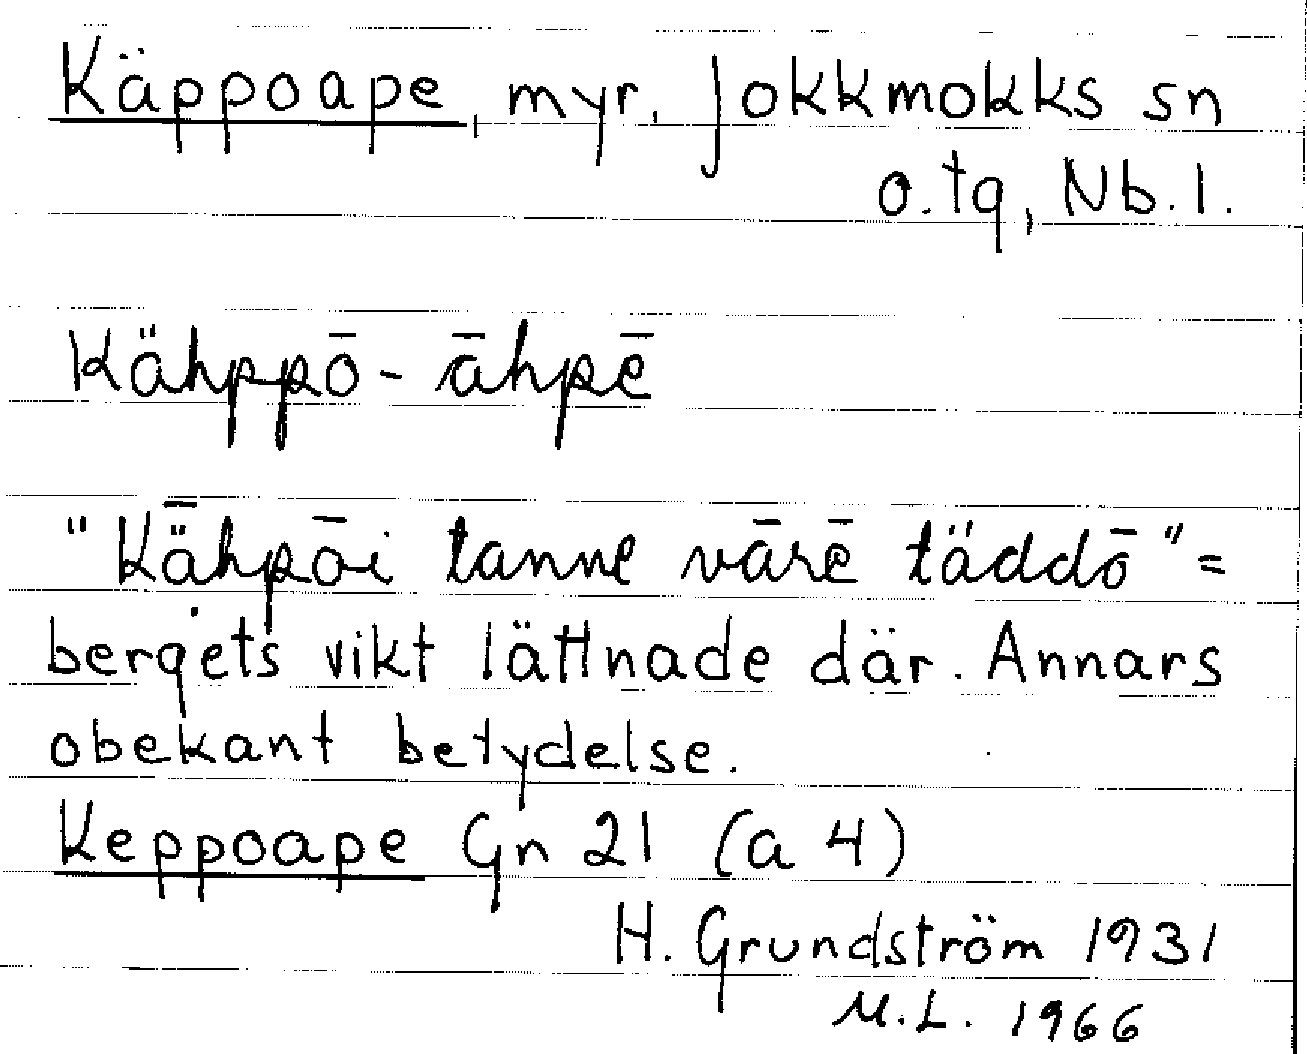 Käppoape, myr. Jokkmokks sn
o. tg, Nb. l.
Kähppō - āhpē
"Kǟhpōi tanne vārē täddō" =
bergets vikt lättnade där. Annars
obekant betydelse.
Keppoape Gn 21 (a 4)
H. Grundström 1931
M.L. 1966